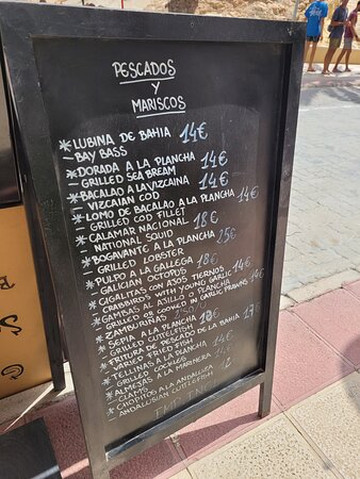 PESCADOS
Y
MARISCOS
* LUBINA DE BAHIA 14€
- BAY BASS
* DORADA A LA PLANCHA 14€
- GRILLED SEA BREAM
* BACALAO A LA VIZCAINA 14€
- VIZCAIAN COD
* LOMO DE BACALAO A LA PLANCHA 14€
- GRILLED COD FILLET
* CALAMAR NACIONAL 18€
- NATIONAL SQUID
* BOGAVANTE A LA PLANCHA 25€
- GRILLED LOBSTER
* PULPO A LA GALLEGA 18€
- GALICIAN OCTOPUS
* CIGALITAS CON AJOS TIERNOS
- CRABBIRDS WITH YOUNG GARLIC 14€
* GAMBAS AL AJILLO O PLANCHA 14€
- GRILLED OR COOKED IN GARLIC PRAWNS
* ZAMBURIÑAS
* SEPIA A LA PLANCHA
- GRILLED CUTTLEFISH
* FRITURA DE PESCADO DE LA BAHIA
- VARIED FRIED FISH
* TELLINAS A LA PLANCHA 14€
- GRILLED COCKLES
* ALMEJAS A LA MARINERA
- CLAMS
* CHOPITOS A LA ANDALUZA
- ANDALUSIAN CUTTLEFISH